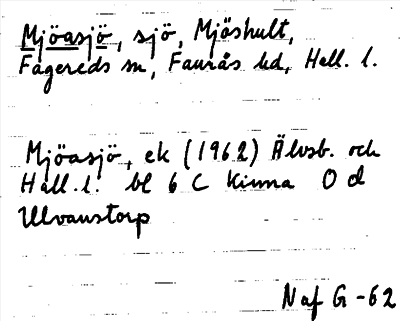 Mjöasjö, sjö, Mjöshult,
Fagereds sn, Faurås hd, Hall. l.
Mjöasjö, ek (1962) Älvsb. och
Hall. l. bl 6 C Kinna O d
Ulvanstorp
Naf G -62